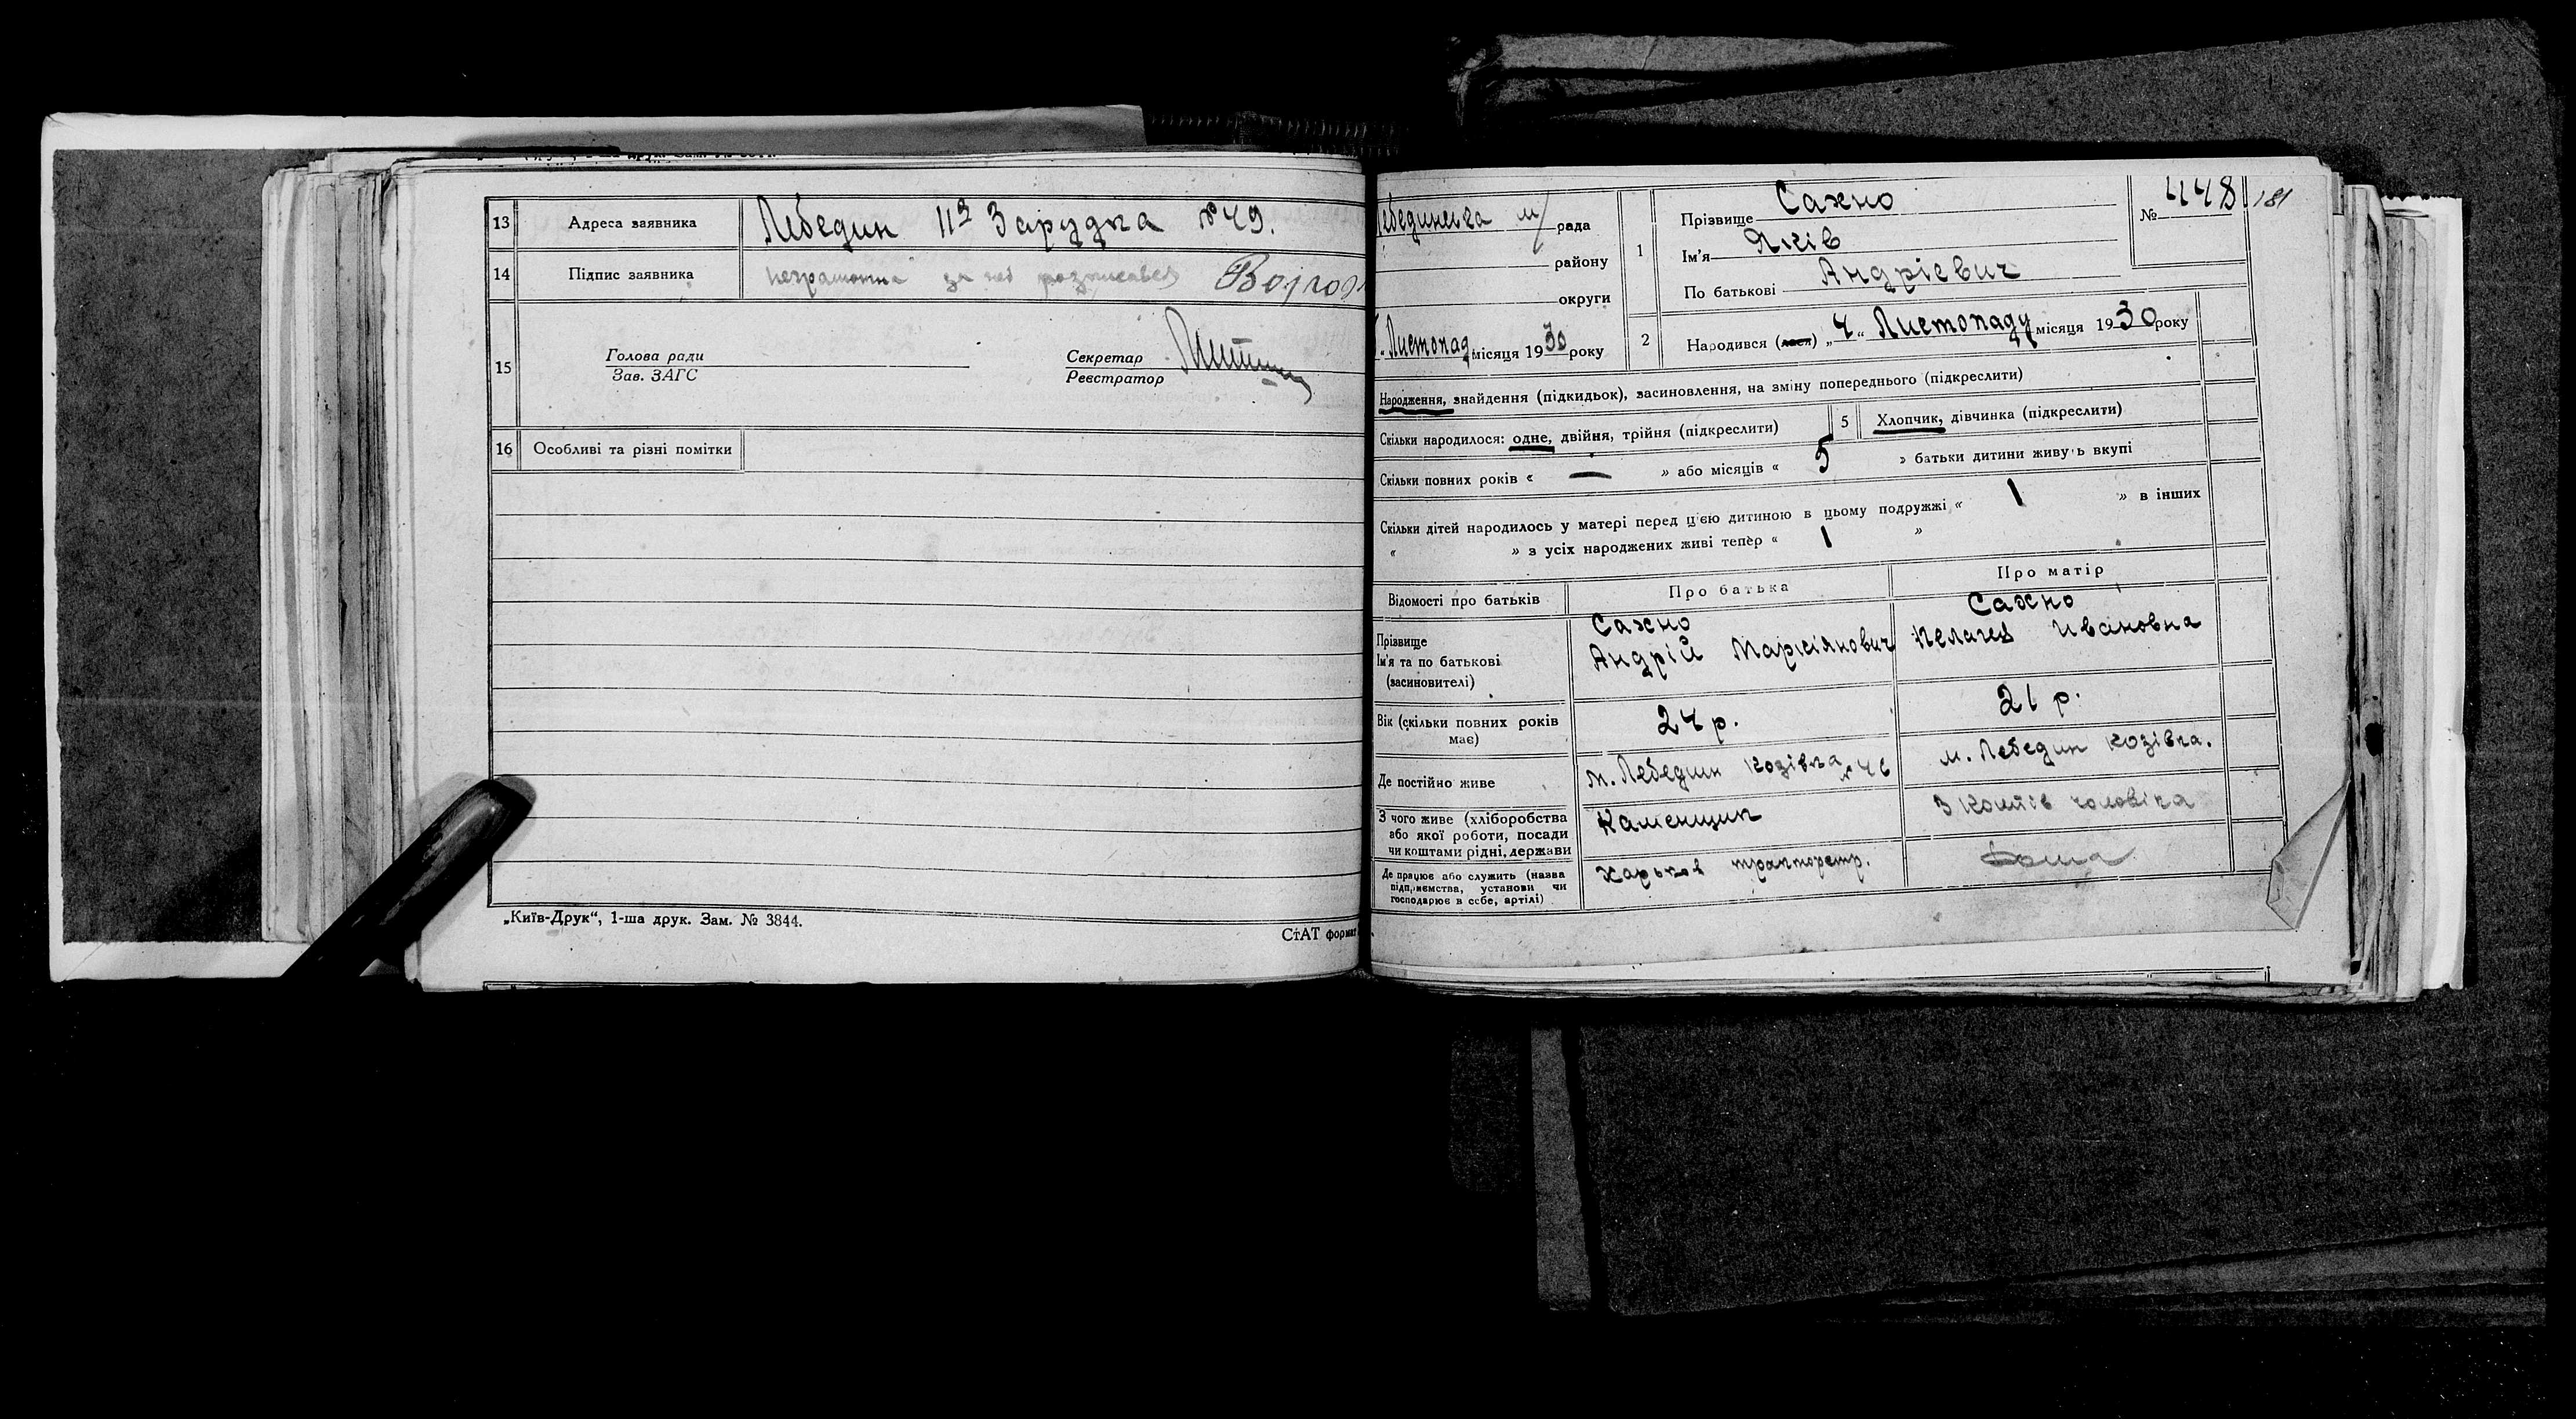 13 Адреса заявника Лебедин 11а Зарудка № 49.
14 Підпис заявника неграмотна за неї розписався
15 Голова ради
Зав. ЗАГС
Секретар
Реєстратор
16 Особливі та різні помітки
„Київ-Друк“, 1-ша друк. Зам. № 3844.
СтАТ формат
Лебединська м/рада
району
округи
Листопад місяця 1930 року
1 Прізвище Сахно
Ім'я Яків
По батькові Андрієвич
№ 448
181
2 Народився (лася) „4“ Листопаду місяця 1930 року
Народження, знайдення (підкидьок), засиновлення, на зміну попереднього (підкреслити)
Скільки народилося: одне, двійня, трійня (підкреслити) 5 Хлопчик, дівчинка (підкреслити)
Скільки повних років « — » або місяців « 5 » батьки дитини живуть вкупі
Скільки дітей народилось у матері перед цією дитиною в цьому подружжі « 1 » в інших
« » з усіх народжених живі тепер « 1 »
Відомості про батьків Про батька Про матір
Прізвище Сахно Сахно
Ім'я та по батькові Андрій Маркіянович Пелагея Ивановна
(засиновителі)
Вік (скільки повних років має) 24 р. 21 р.
Де постійно живе м. Лебедин Козівка № 46 м. Лебедин Козівка.
З чого живе (хліборобства Каменщик З коштів чоловіка
або якої роботи, посади
чи коштами рідні, держави
Де працює або служить (назва Харьков тракторстр. дома
підприємства, установи чи
господарює в себе, артілі)